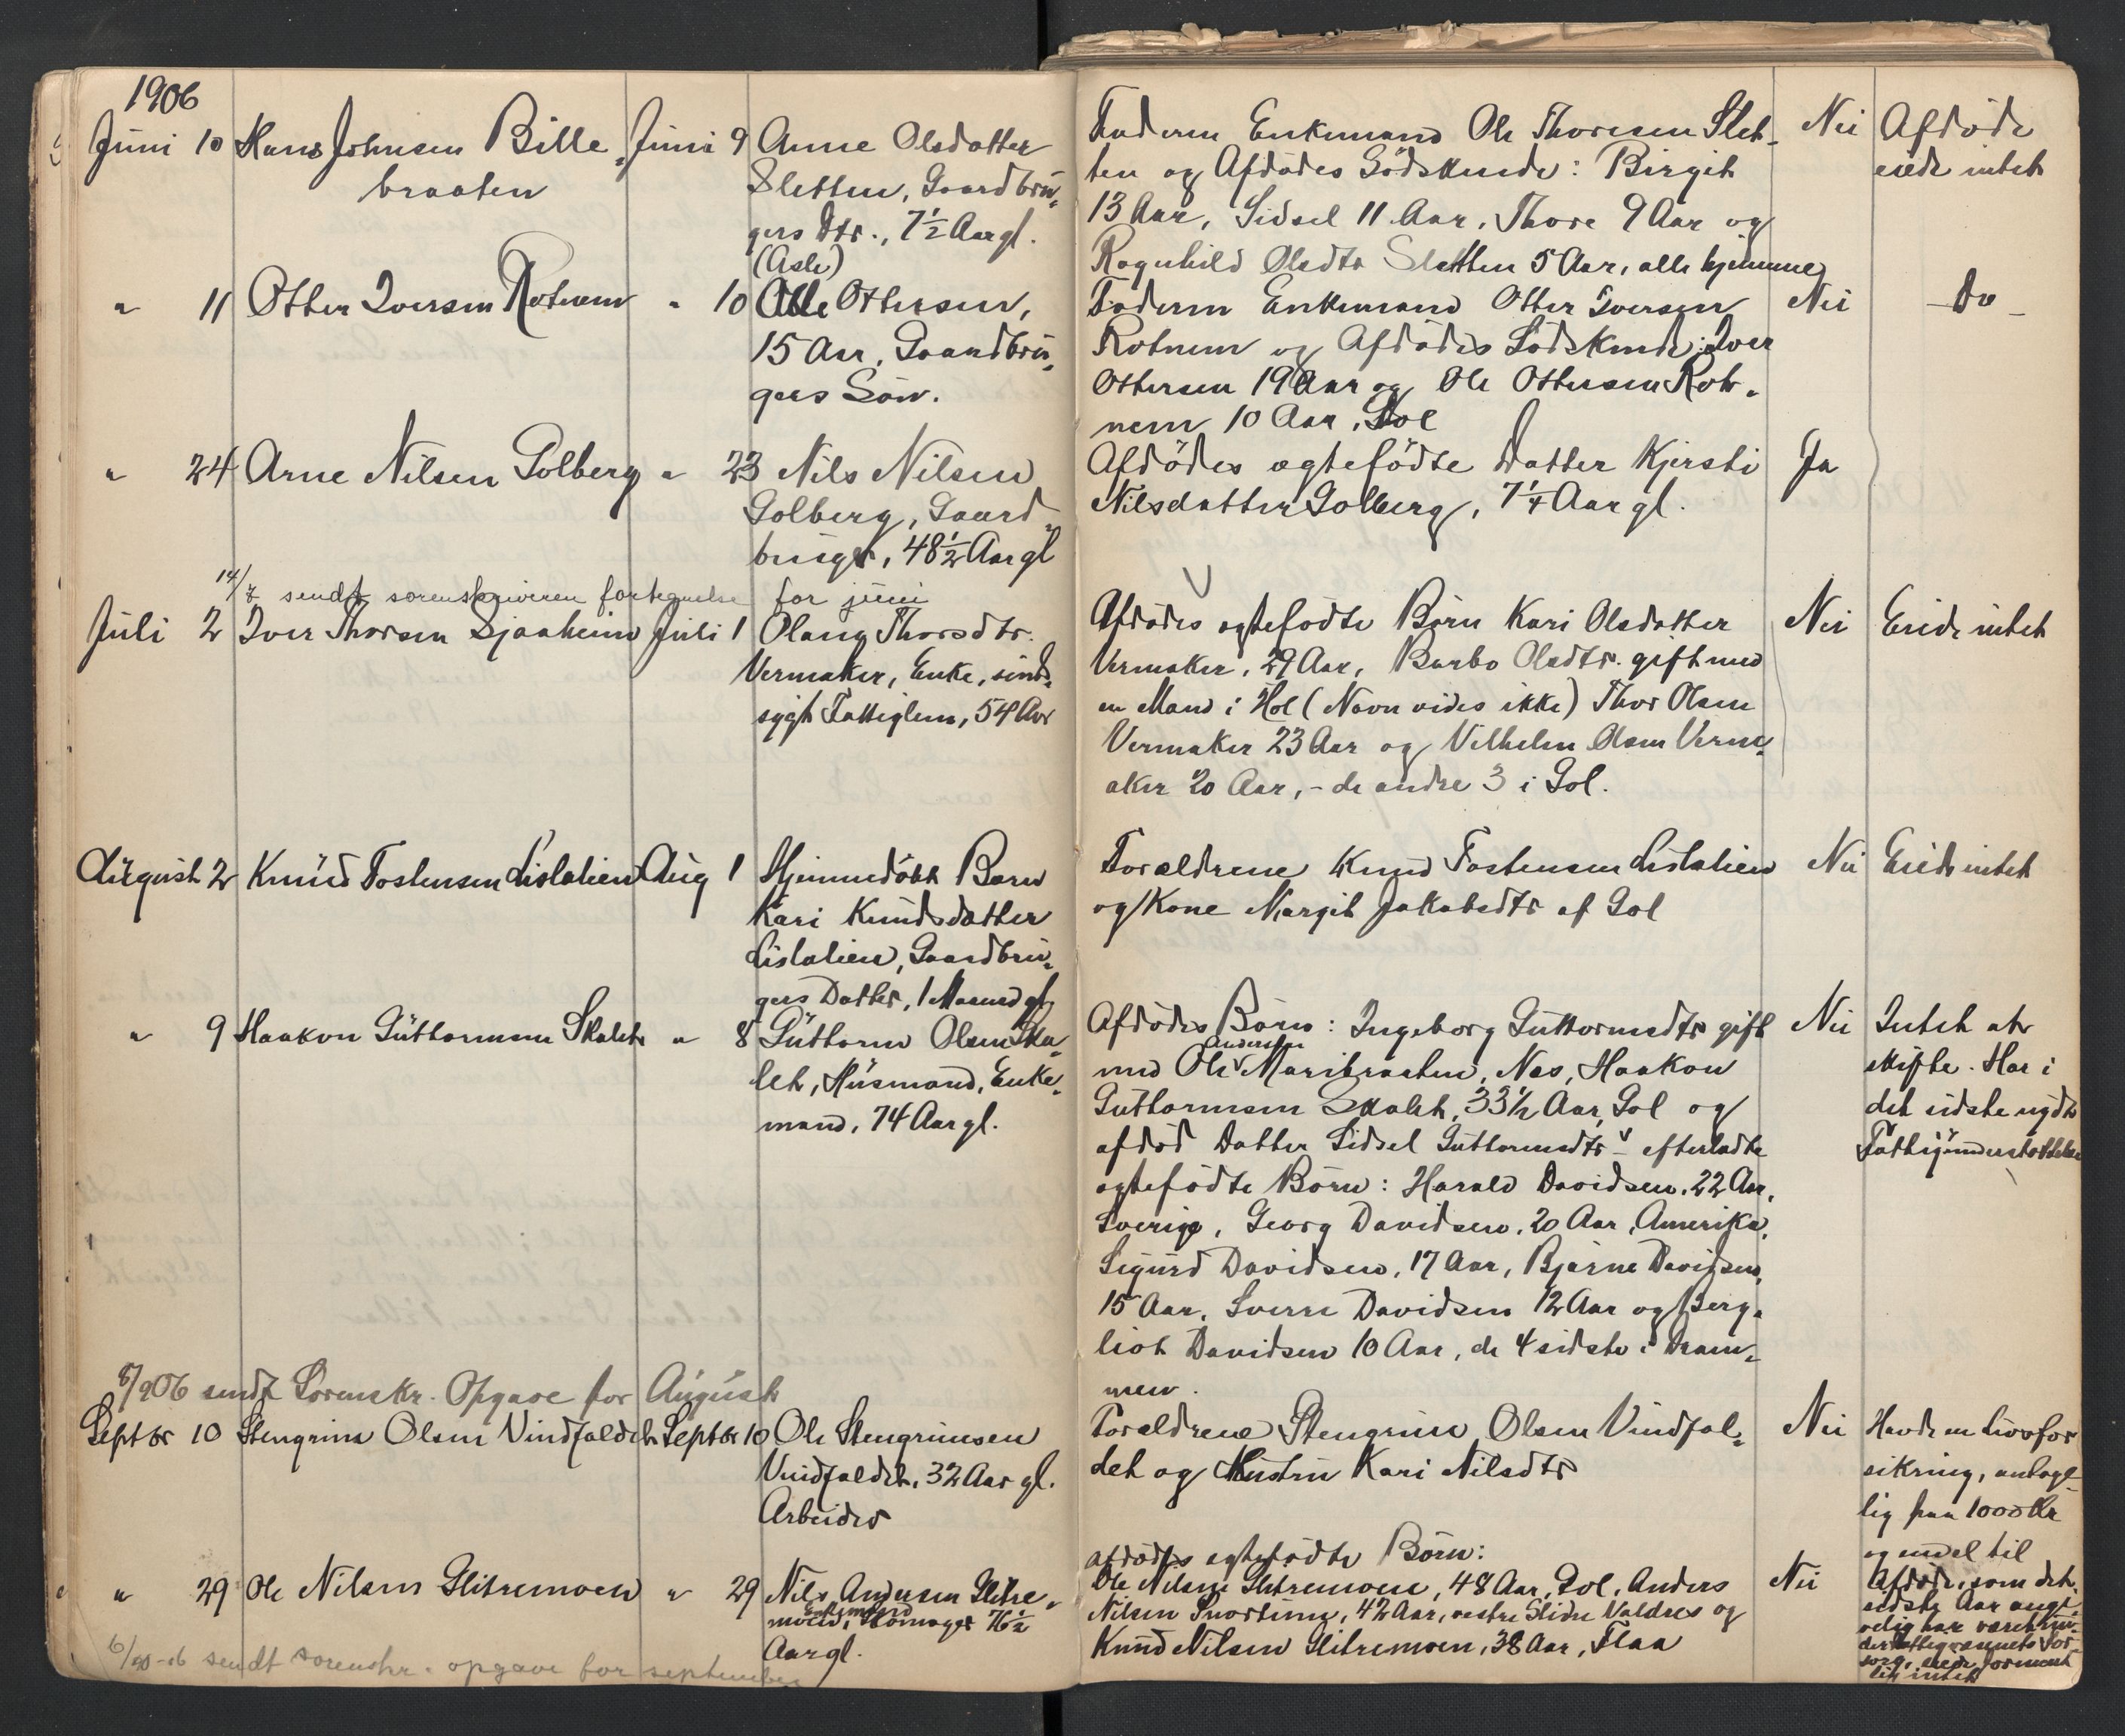 1906
Juni 10 Hans Johnsen Bille- Juni 9 Anne Olsdatter
braaten Sletten, Gaardbru-
gers Dtr., 7½ Aar gl.
(Asle)
" 11 Otter Iversen Rotnem " 10 Atle Ottersen,
15 Aar, Gaardbru-
gers Søn.
" 24 Arne Nilsen Golberg " 23 Nils Nilsen
Golberg, Gaard-
bruger, 48½ Aar gl
14/7 sendt sorenskriveren fortegnelse for juni
Juli 2 Iver Thorsen Sjaaheim Juli 1 Olaug Thorsdtr.
Vermaker, Enke, sinds-
sygt Fattiglem, 54 Aar
August 2 Knud Tostensen Lislelien Aug 1 Hjemmedøbt Barn
Kari Knudsdatter
Lislelien, Gaardbru-
gers Datter, 1 Maaned gl.
" 9 Haakon Guttormsen Skalet " 8 Guttorm Olsen Ska-
let, Husmand, Enke-
mand, 74 Aar gl.
8/9 06 sendt Sorenskr. Opgave for August
Septbr 10 Stengrim Olsen Vindfaldet Septbr 10 Ole Stengrimsen
Vindfaldet, 32 Aar gl.
Arbeider
" 29 Ole Nilsen Slitremoen " 29 Nils Andersen Slitre-
Enkemand
moen, Skomager 76½
Aar gl.
6/10-06 sendt sorenskr. opgave for september
Faderen Enkemand Ole Thoresen Slet- Nei Afdøde
ten og Afdødes Södskende: Birgit eiede intet
13 Aar, Sidsel 11 Aar, Thore 9 Aar og
Ragnhild Olsdtr Sletten 5 Aar, alle hjemme
Faderen Enkemand Otter Iversen Nei -Do-
Rotnem og Afdødes Södskende: Iver
Ottersen 19 Aar og Ole Ottersen Rot-
nem 10 Aar, Gol
Afdödes ægtefödte Datter Kjersti Ja
Nilsdatter Golberg, 7¼ Aar gl.
Afdødes ægtefødte Børn Kari Olsdatter Nei Eiede intet
Vermaker, 29 Aar, Barbo Olsdtr. gift med
en Mand i Hol (Navn vides ikke) Thor Olsen
Vermaker 23 Aar og Vilhelm Olsen Verm-
aker 20 Aar, - de andre 3 i Gol.
Forældrene Knud Tostensen Lislelien Nei Eiede intet
og Kone Margit Jakobsdtr af Gol
Afdødes Børn: Ingeborg Guttormsdtr gift Nei Intet at
Andersen
med Ole v Maribraaten, Nes, Haakon skifte. Har i
Guttormsen Skalet, 33½ Aar, Gol og det sidste nydt
afdød Datter Sidsel Guttormsdtrs efterladte Fattigunderstøttelse
ægtefødte Börn: Harald Davidsen, 22 Aar,
Sverige, Georg Davidsen, 20 Aar, Amerika,
Sigurd Davidsen, 17 Aar, Bjarne Davidsen,
15 Aar, Sverre Davidsen 12 Aar og Berg-
liot Davidsen 10 Aar, de 4 sidste i Dram-
men.
Forældrene Stengrim Olsen Vindfal- Nei Havde en Livsfor
det og Hustru Kari Nilsdtr sikring, antage-
lig paa 1000 Kr
og endel til
afdødes ægtefødte Børn:
Ole Nilsen Slitremoen, 48 Aar, Gol, Anders Nei Afdøde, som det
Nilsen Snortum, 42 Aar, vestre Slidre Valdres og sidste Aar
Knud Nilsen Slitremoen, 38 Aar, Flaa har været un-
der Fattigvæsenets For-
sorg, eiede forment-
lig intet